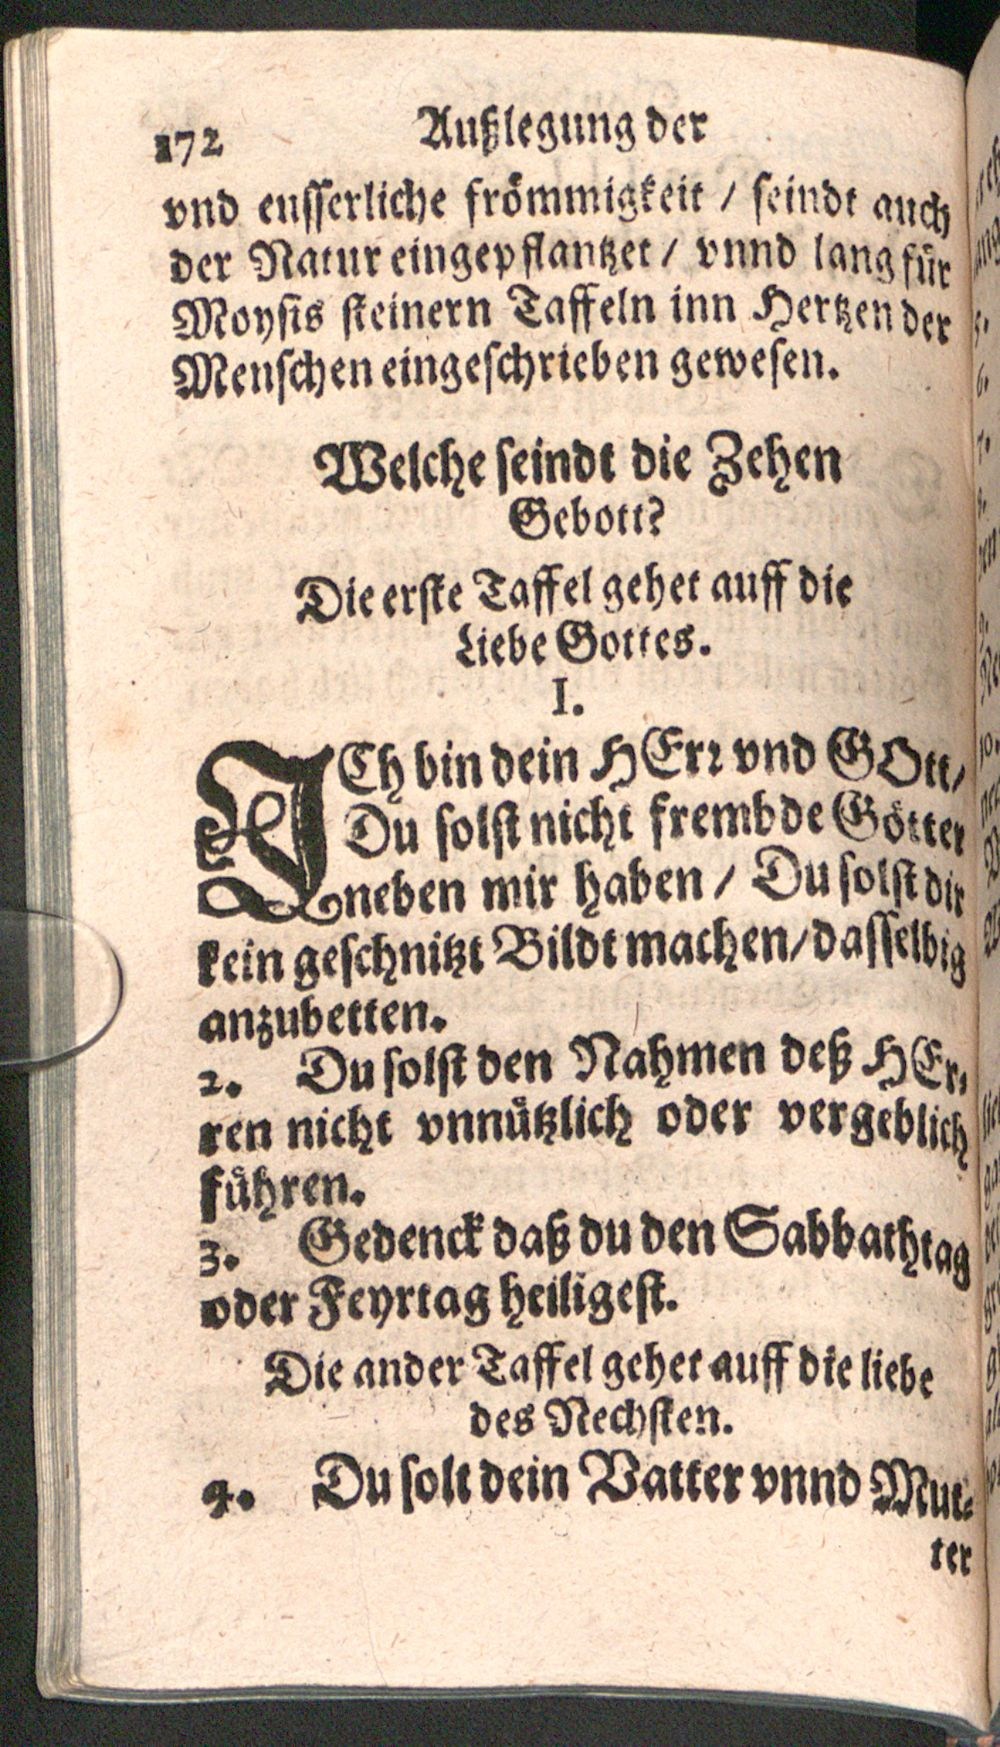 172 Außlegung der
vnd eusserliche frömmigkeit / seindt auch
der Natur eingepflantzet / vnnd lang für
Moysis steinern Taffeln inn Hertzen der
Menschen eingeschrieben gewesen.
Welche seindt die Zehen
Gebott?
Die erste Taffel gehet auff die
Liebe Gottes.
I.
ICh bin dein HErr vnd GOtt/
Du solst nicht frembde Götter
neben mir haben / Du solst dir
kein geschnitzt Bildt machen/dasselbig
anzubetten.
2. Du solst den Nahmen deß HEr-
ren nicht vnnützlich oder vergeblich
führen.
3. Gedenck daß du den Sabbathtag
oder Feyrtag heiligest.
Die ander Taffel gehet auff die liebe
des Nechsten.
4. Du solt dein Vatter vnnd Mut-
ter